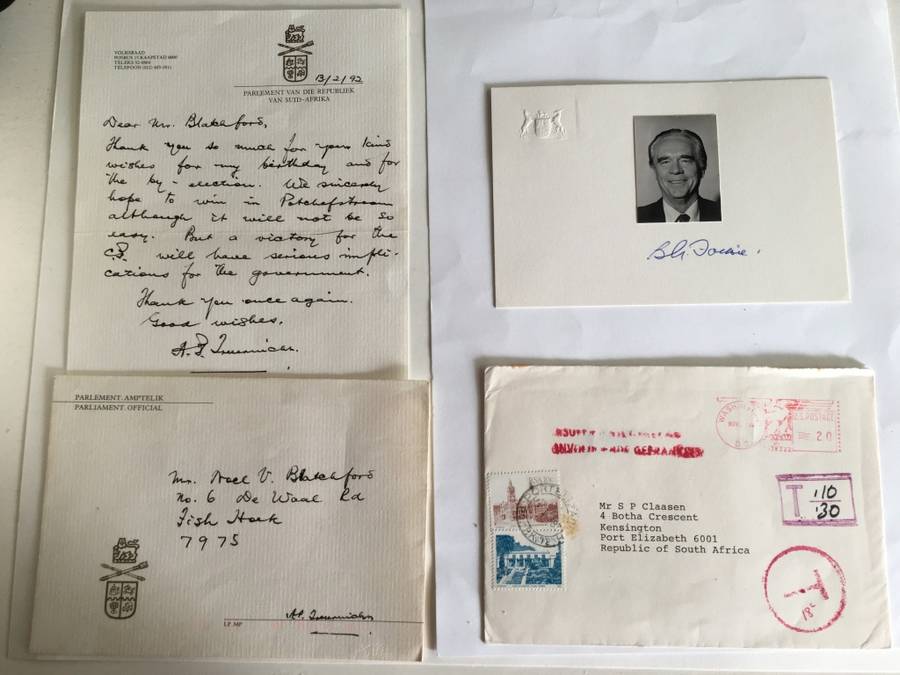 VOLKSRAAD
TELEKS
TELEFOON
13/2/92
PARLEMENT VAN DIE REPUBLIEK
VAN SUID-AFRIKA
Dear Mr. Blatchford,
Thank you so much for your kind
wishes for my birthday and for
the by-election. We sincerely
hope to win in Potchefstroom
although it will not be so
easy. But a victory for the
C.P. will have serious impli-
cations for the government.
Thank you once again.
Good wishes,
PARLEMENT AMPTELIK
PARLIAMENT OFFICIAL
Mr. Noel V. Blatchford
No. 6 De Waal Rd
Fish Hoek
7975
LP MP
U.S. POSTAGE
20
T 10
30
Mr S P Claasen
4 Botha Crescent
Kensington
Port Elizabeth 6001
Republic of South Africa
T